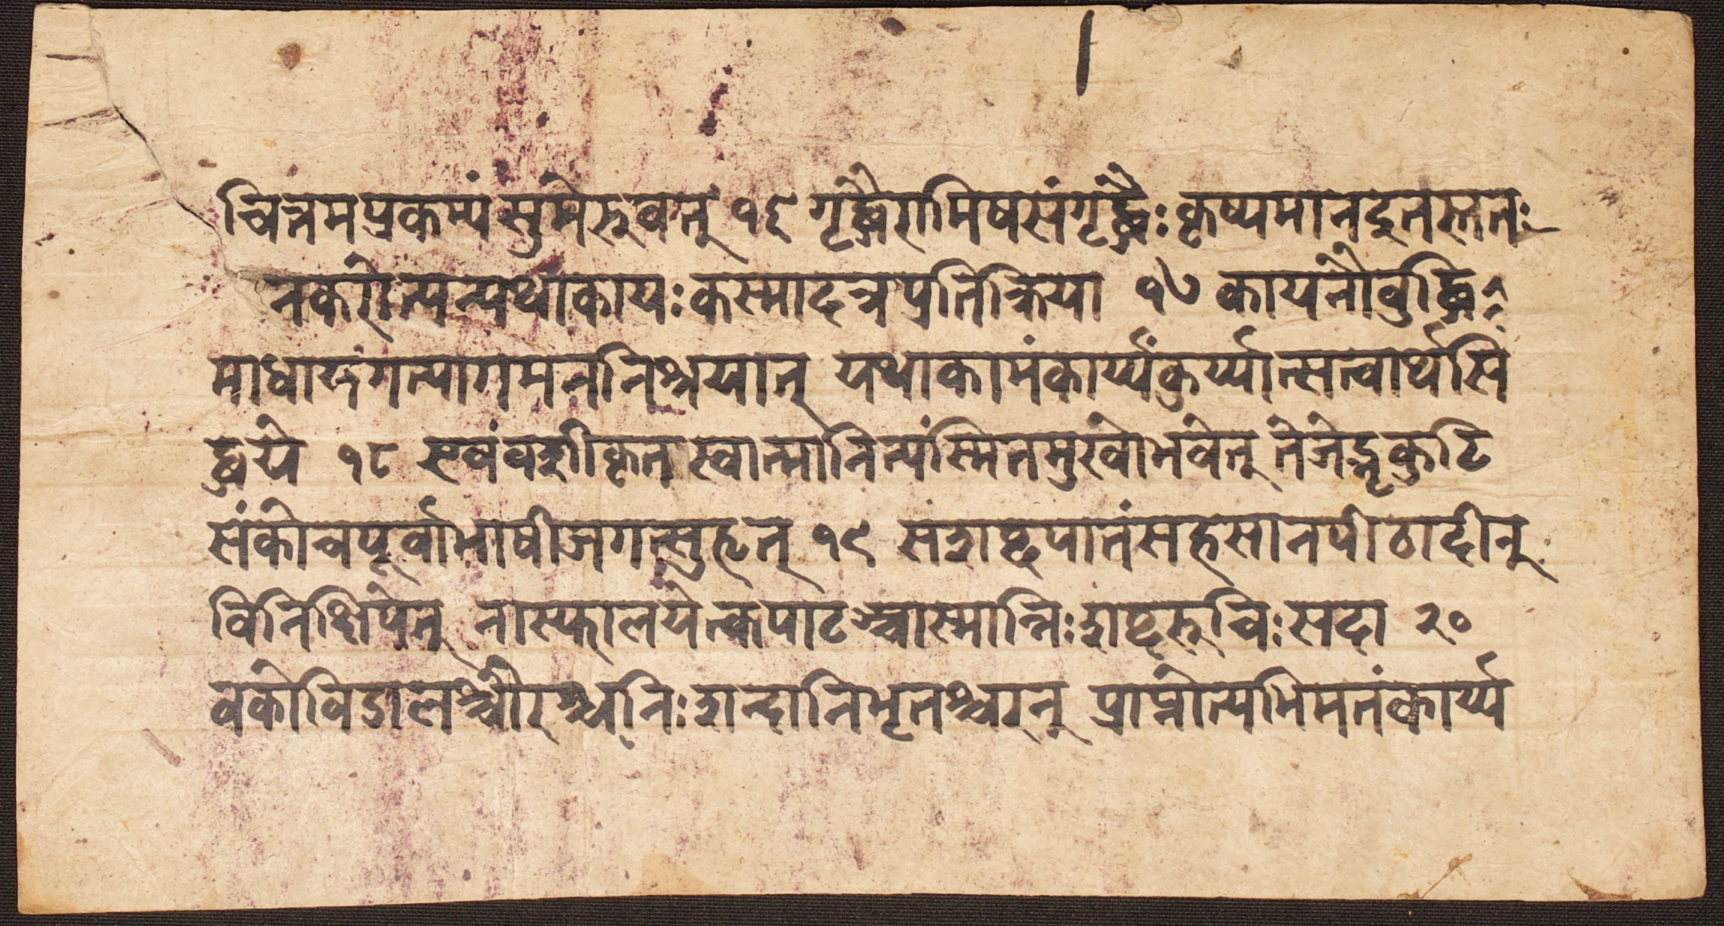 चित्तमप्रकम्प्यं सुमेरुवत् १६ गृद्ध्रैरामिषसंगृद्ध्रैः कृष्यमानइतस्ततः
नकरोत्यन्यथाकायः कस्मादत्रप्रतिक्रिया १७ कायनौबुद्धि
माधाय गत्यागमननिश्रयात् यथाकामंकार्य्यंकुर्य्यात्सत्वार्थसि
द्धये १८ एवंवशीकृतस्वात्मानित्यंस्मितमुखोभवेत् तेजेद्भृकुटि
संकोचपूर्वाभाषीजगत्सुहृत् १९ सशब्दपातंसहसानपीठादीन्
विनिक्षिपेत् नास्फालयेत्कपाटञ्चास्मान्निःशब्दरुचिः सदा २०
वकोविडालश्चौरश्चनिःशब्दोनिभृतश्चरन् प्राप्नोत्यभिमतंकार्य्य